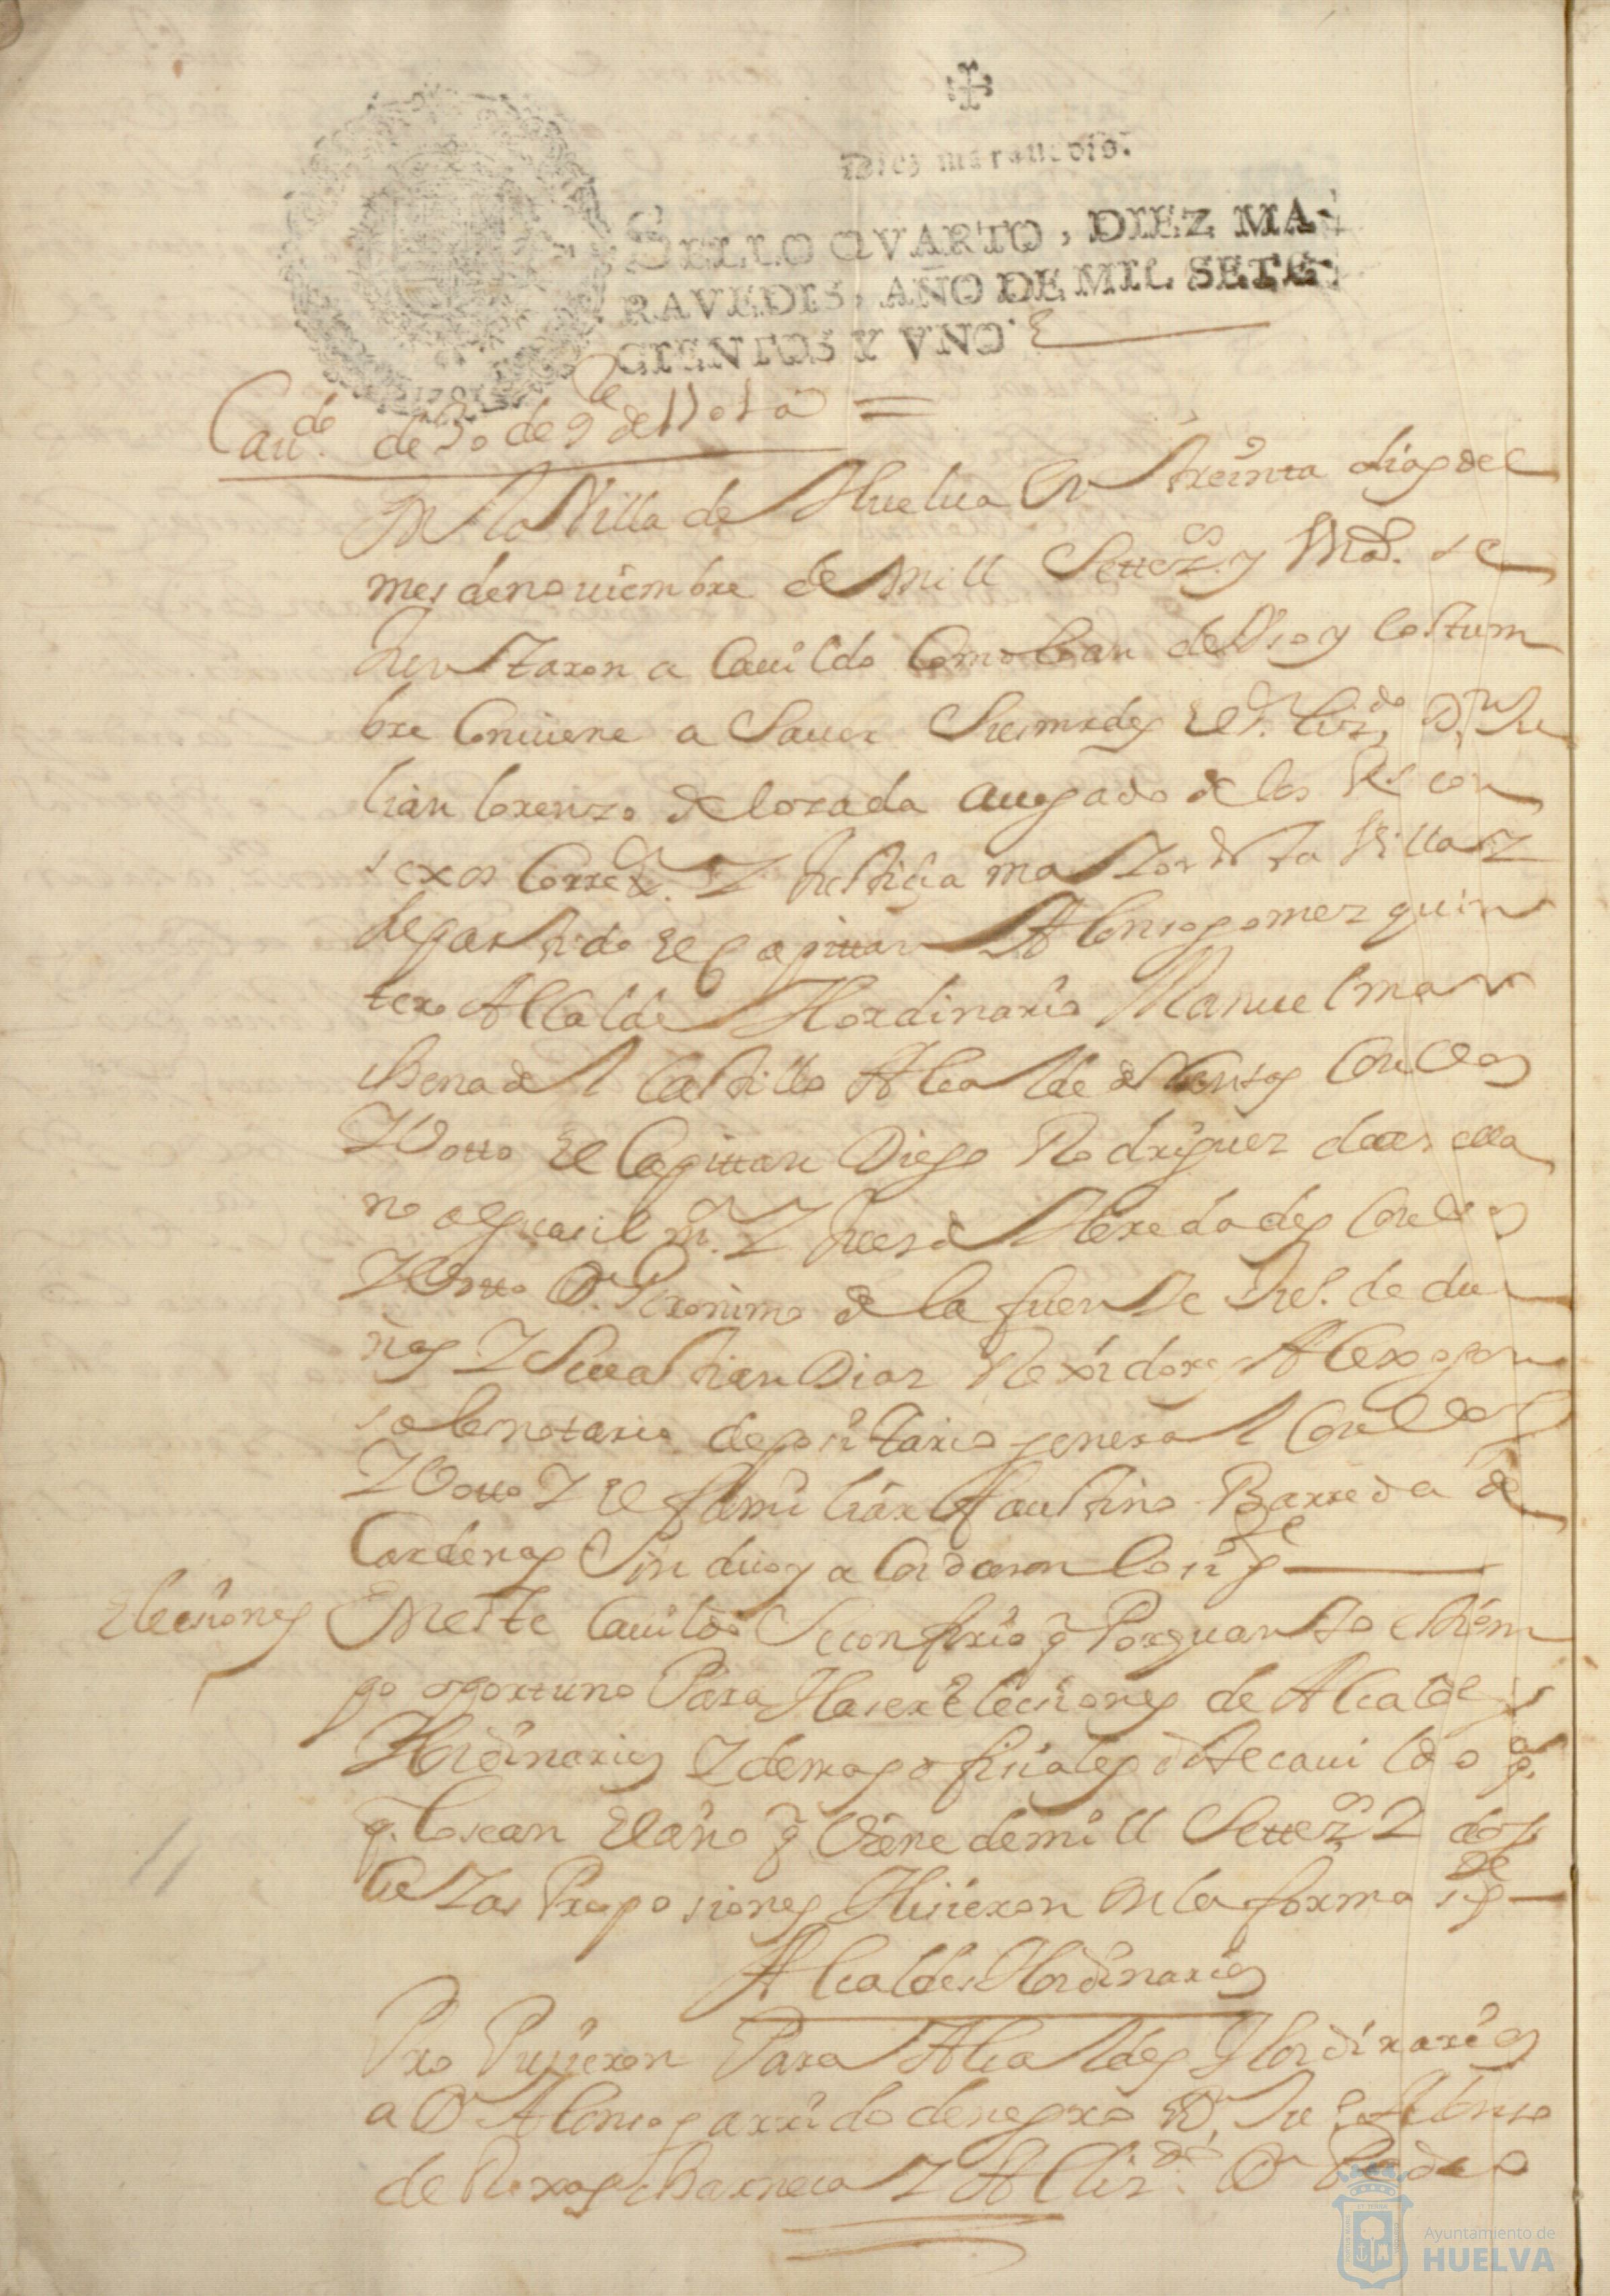 Diez marauedis.
SELLO QVARTO, DIEZ MA-
RAVEDIS, AÑO DE MIL SETE-
CIENTOS Y VNO.
1701
Cau.do de 30 de 9re de 1701 a
En la Villa de Huelua En treinta dias del
mes de nouiembre de mill Settez.os y Vno. se
Juntaron a Cauildo Como lo an de Vso y Costum
bre Conuiene a Sauer Sus mrdes El Sr. Liz.do Dn. Ju
lian lorenzo de lozada auogado de los Rs. con
sexos Correxr. Y Justicia maYor de sta Villa Y
de partido El Capittan Alonso gomez quin
tero Alcalde Hordinario Manuel mar
chena del Castillo Alcalde de Con Vos
Y Votto El Capittan Diego Rodriguez de arella
no alguasil mr. Y Jues de Heredades Con Vos
Y Votto Dn. Geronimo de la fuente Jues. de due
ñas Y Seuastian Diaz Rexidores Alexo gon
sales notario depositario general Con Vos
Y Votto Y El familiar faustino Barreda de
Cardenas Sindico y acordaron lo sigte
Elecsiones
En este Cauildo Se confirio q Por quanto es tiem
po oportuno Para Haser Elecsiones de Alcaldes
Hordinarios Y demas ofisiales deste cauildo pa.
q. lo sean El año q Viene de mill Settez.os Y dos
Cuyas Proposiones Hisieron En la forma sigte
Alcaldes Hordinarios
Propusieron Para Alcaldes Hordinarios
a Dn Alonso garrido de negro Dn. Jues. Alonso
de Roxas Barneca Y Al Liz.do Dn Pedro
Ayuntamiento de
HUELVA